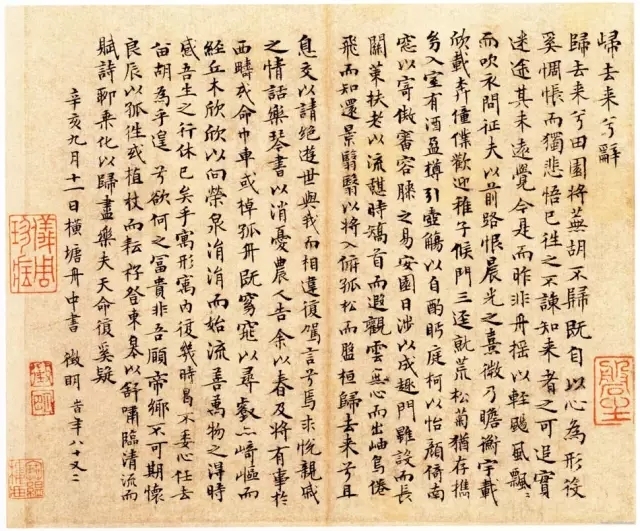 歸去来兮辭
歸去来兮田園將蕪胡不歸既自以心為形役
奚惆悵而獨悲悟已往之不諫知来者之可追實
迷途其未遠覺今是而昨非舟摇以輕颺風飄〻
而吹衣問征夫以前路恨晨光之熹微乃瞻衡宇載
欣載奔僮僕歡迎稚子候門三逕就荒松菊猶存携
幼入室有酒盈罇引壺觴以自酌眄庭柯以怡顏倚南
窓以寄傲審容膝之易安園日涉以成趣門雖設而長
關策扶老以流憩時矯首而遐觀雲無心而出岫鳥倦
飛而知還景翳翳以將入撫孤松而盤桓歸去来兮且
息交以請絕遊世與我而相違復駕言兮焉求悦親戚
之情話樂琴書以消憂農人告余以春及將有事於
西疇或命巾車或棹孤舟既窈窕以尋壑亦崎嶇而
經丘木欣欣以向榮泉涓涓而始流善萬物之得時
感吾生之行休已矣乎寓形寓内復幾時曷不委心任去
留胡為乎遑兮欲何之富貴非吾願帝鄉不可期懷
良辰以孤往或植杖而耘耔登東皋以舒嘯臨清流而
賦詩聊乘化以歸盡樂夫天命復奚疑
辛亥九月十一日橫塘舟中書 徵明 時年八十又二